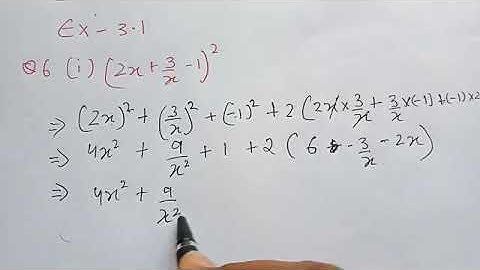 Ex - 3.1
Q6 (i) (2x + 3/x - 1)²
⇒ (2x)² + (3/x)² + (-1)² + 2 (2x × 3/x + 3/x × (-1) + (-1) × 2
⇒ 4x² + 9/x² + 1 + 2 ( 6 - 3/x - 2x)
⇒ 4x² + 9/x²